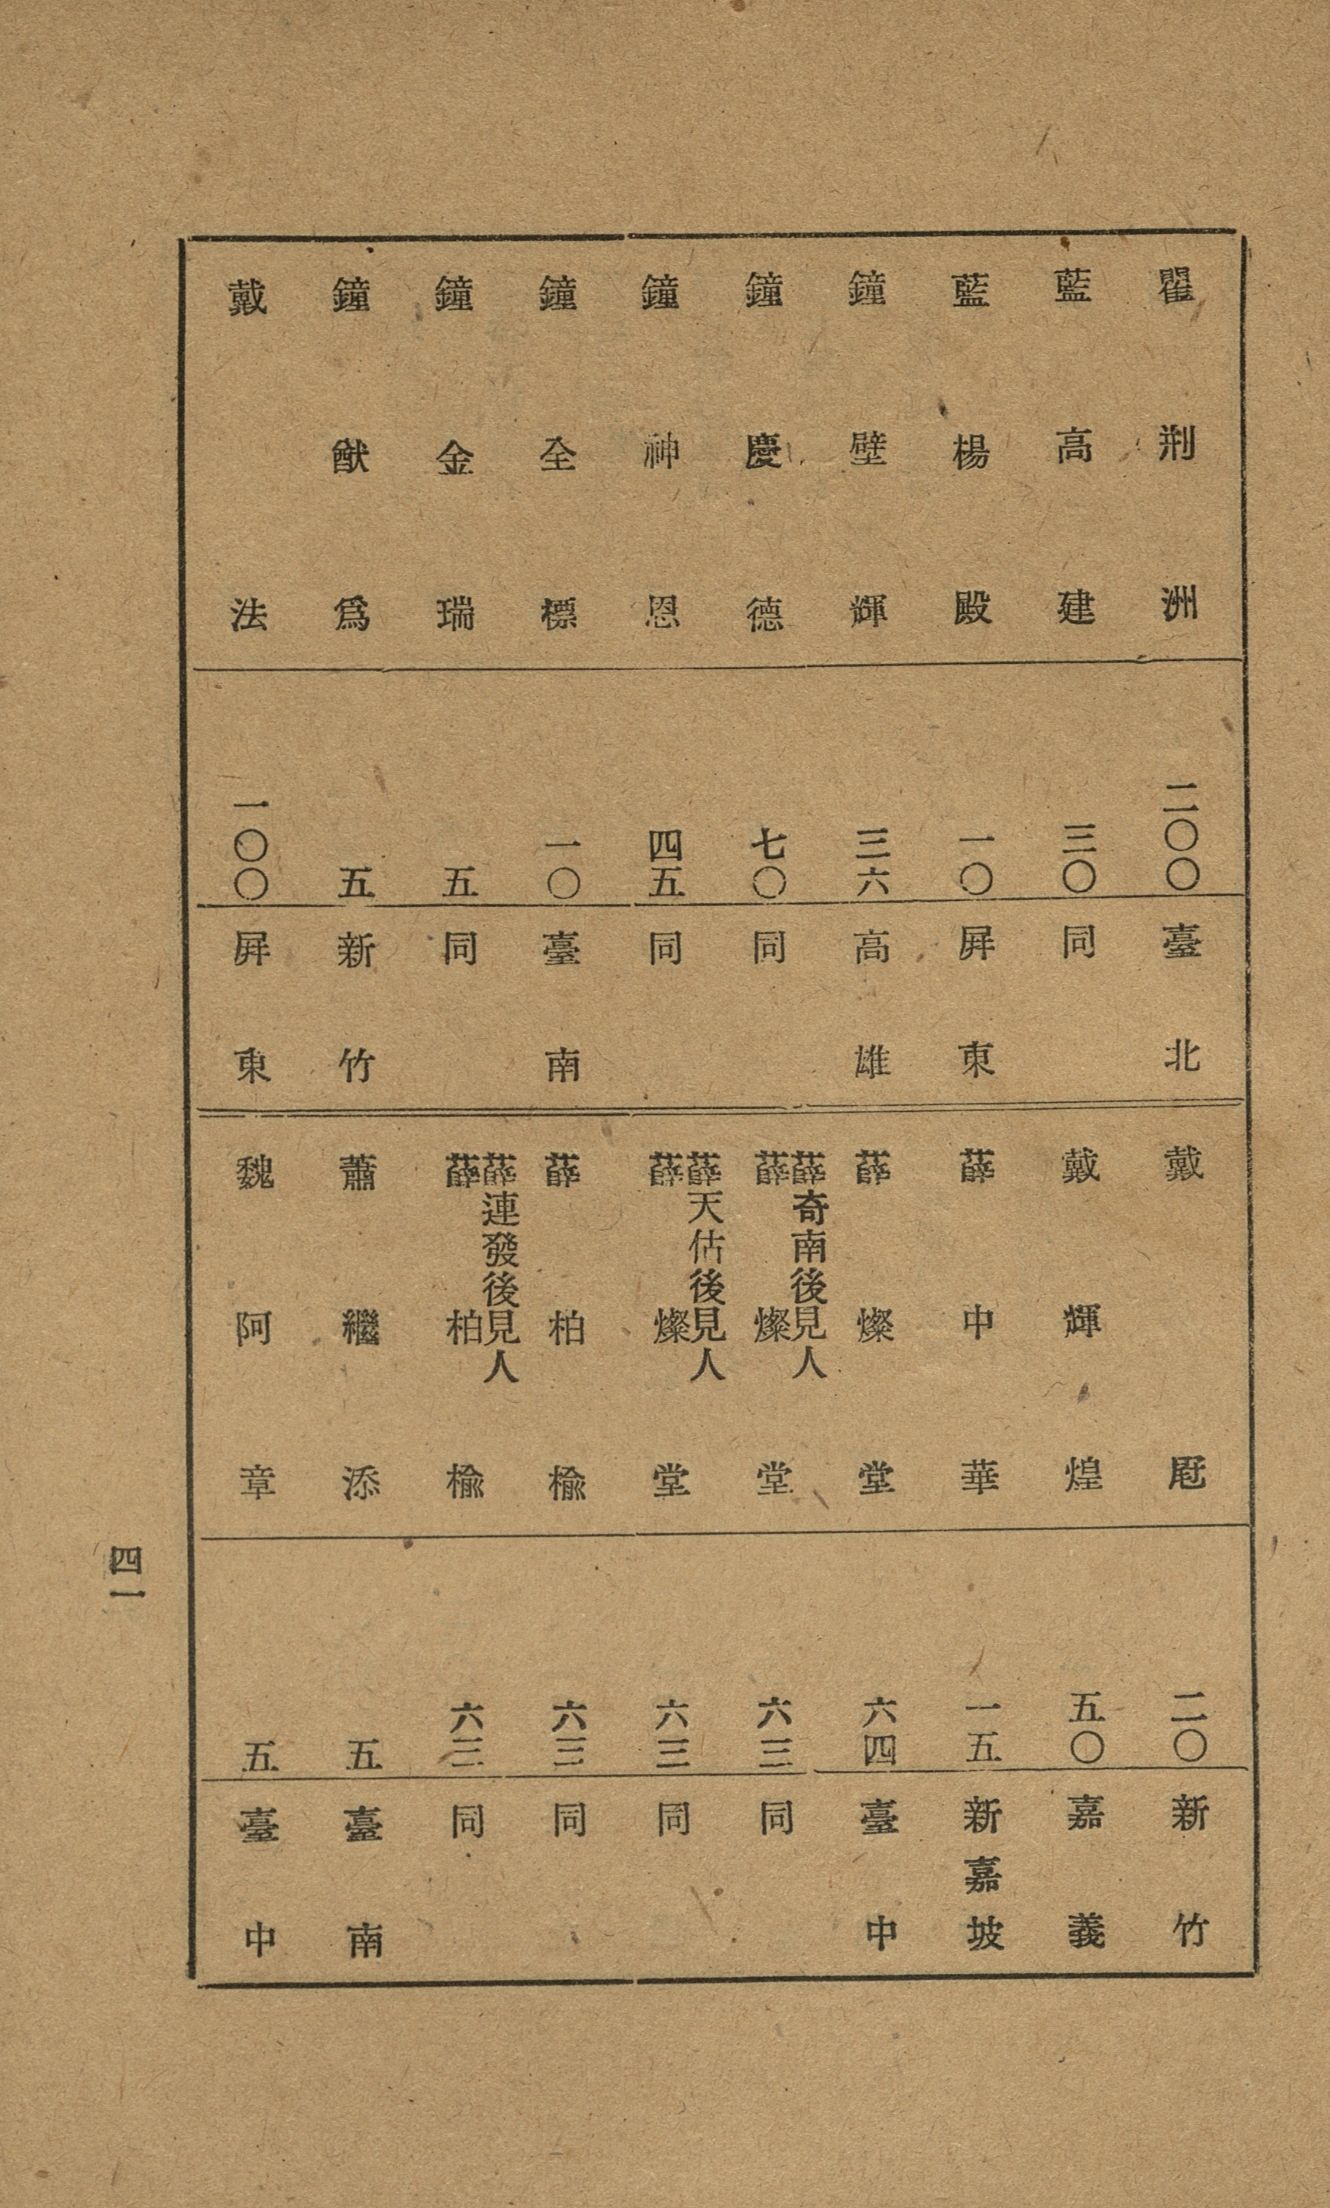 瞿荆洲 二〇〇 臺北
藍高建 三〇 同
藍楊殿 一〇 屛東
鐘壁輝 三六 高雄
鐘慶德 七〇 同
鐘神恩 四五 同
鐘全標 一〇 臺南
鐘金瑞 五 同
鐘猷為 五 新竹
戴法 一〇〇 屛東
戴 二〇 新竹
戴輝煌 五〇 嘉義
薛中華 一五 新嘉坡
薛燦堂 六四 臺中
薛奇南後見人
薛燦堂 六三 同
薛天估後見人
薛燦堂 六三 同
薛柏楡 六三 同
薛連發後見人
薛柏楡 六三 同
蕭繼添 五 臺南
魏阿章 五 臺中
四一